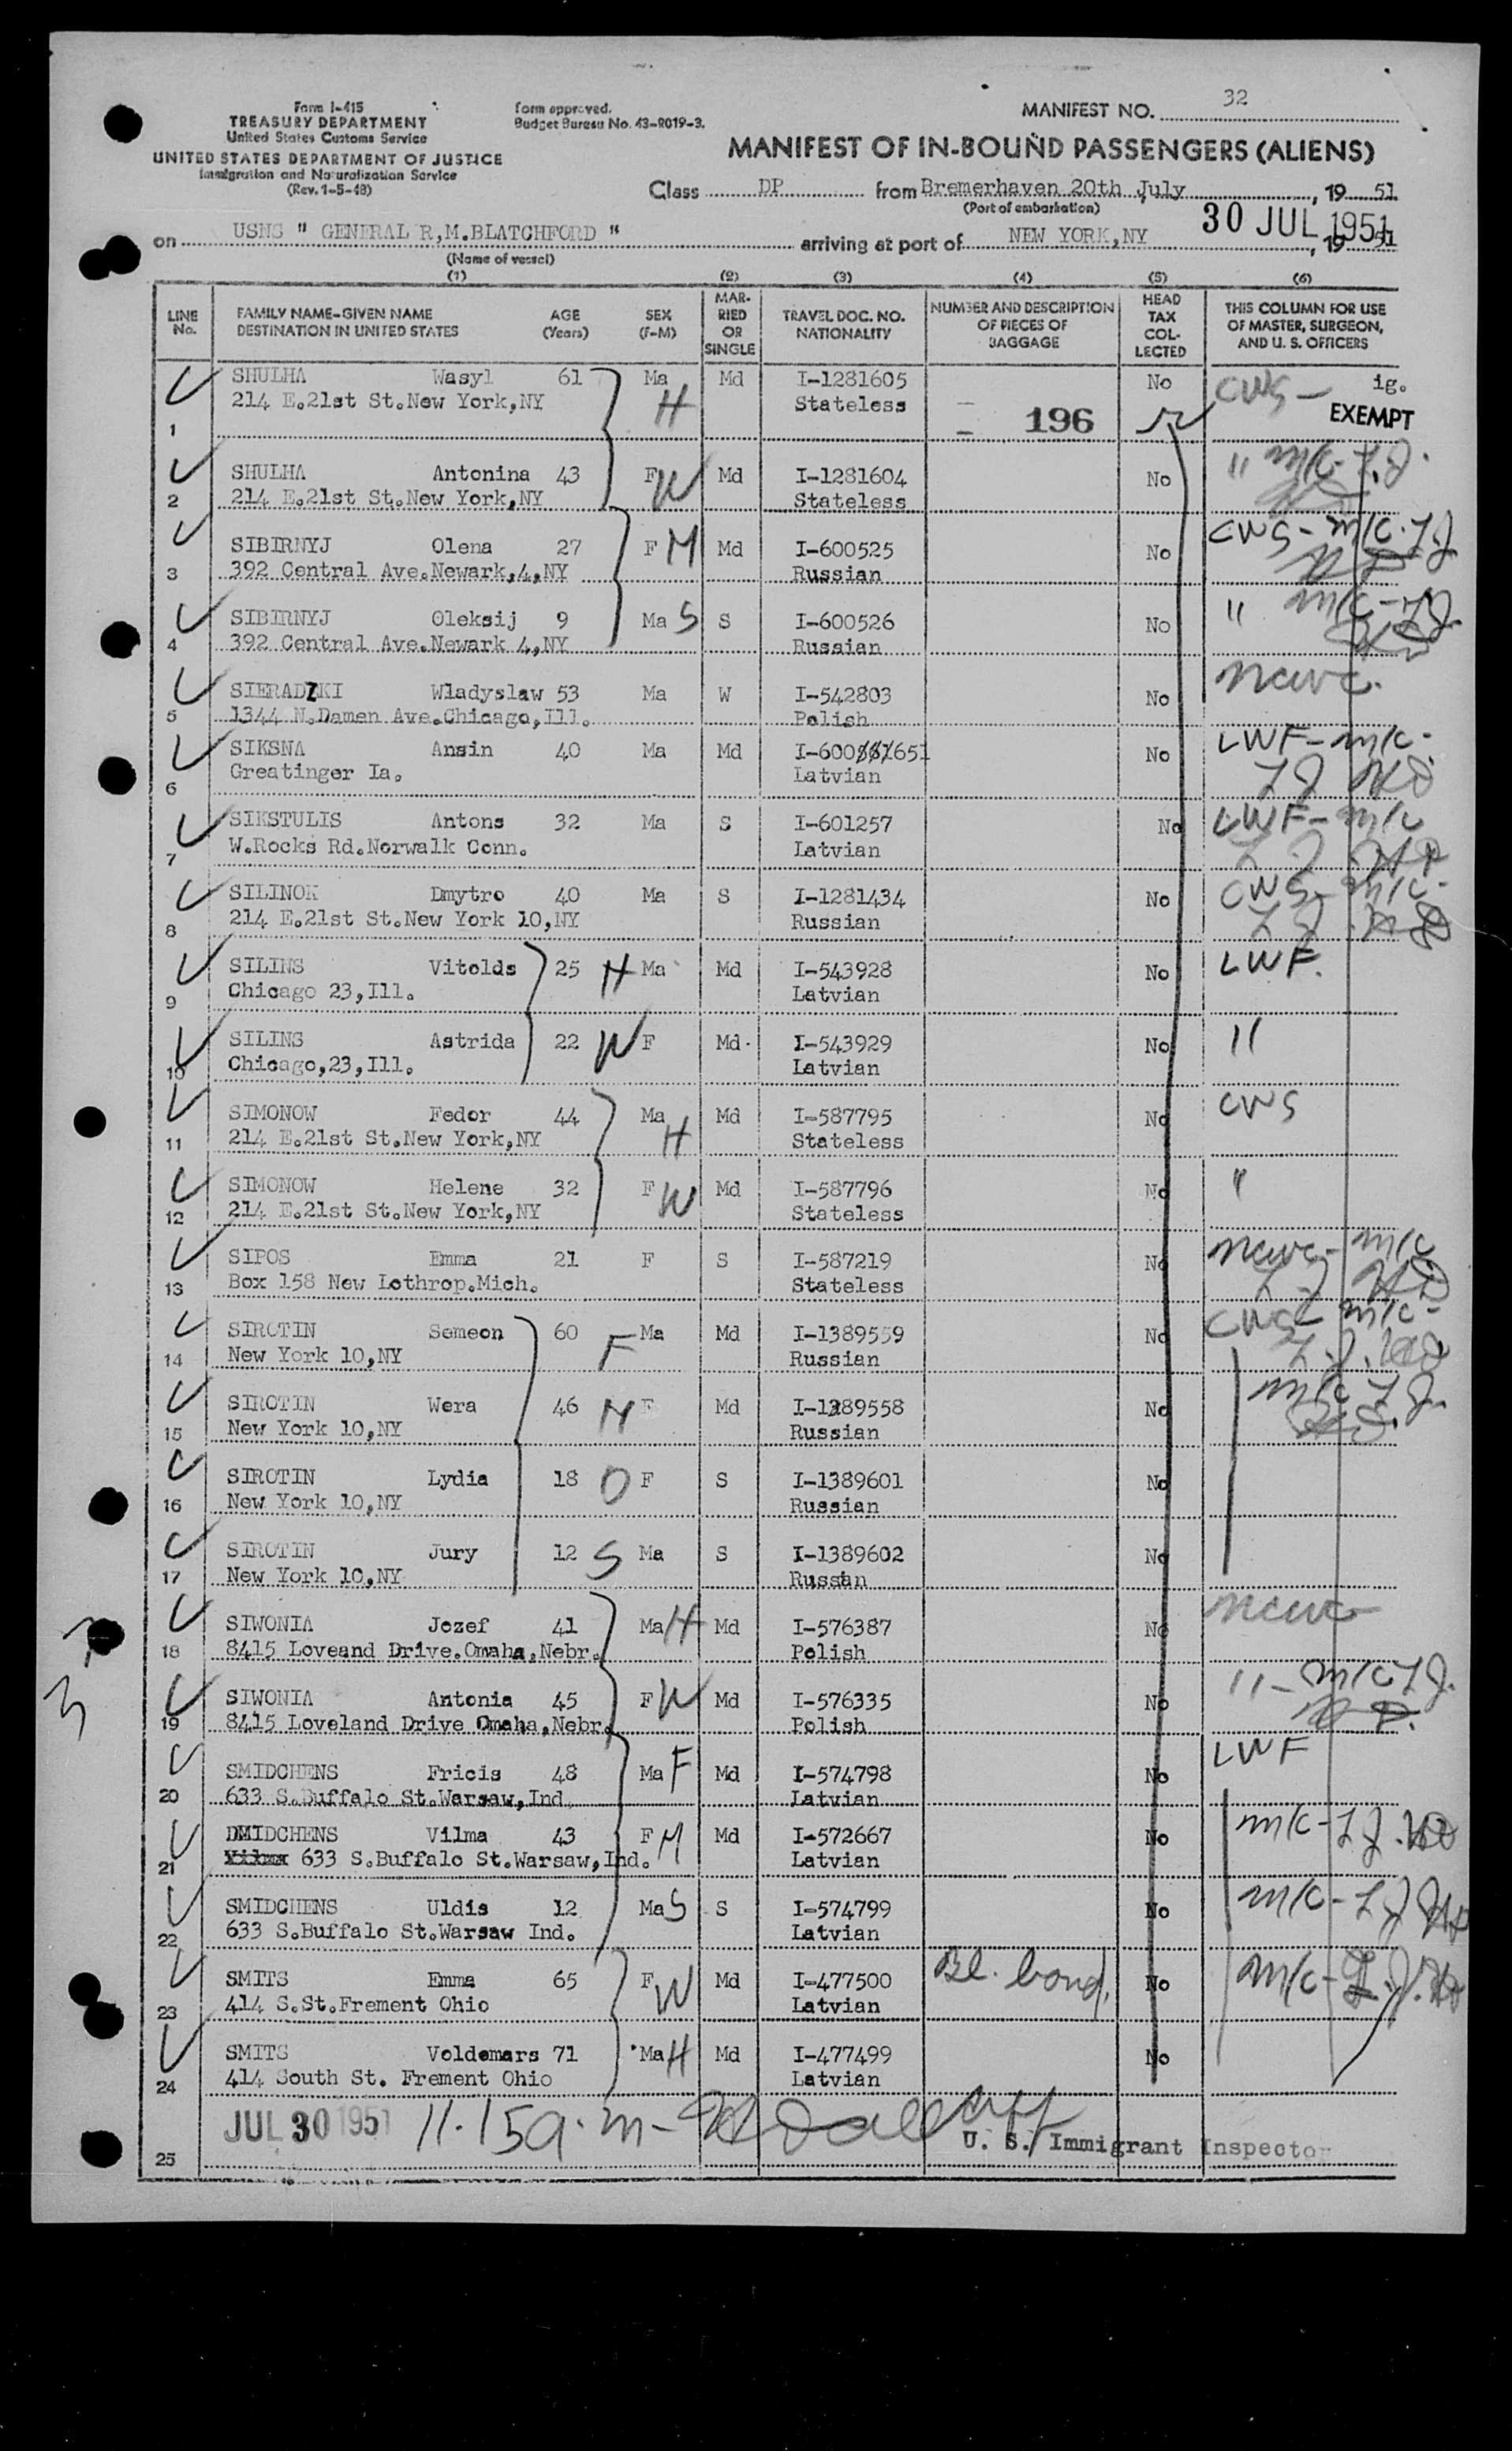 Form I-415
TREASURY DEPARTMENT
United States Customs Service
UNITED STATES DEPARTMENT OF JUSTICE
Immigration and Naturalization Service
(Rev. 1-5-48)
Form approved.
Budget Bureau No. 43-R019-3.
MANIFEST NO. 32
MANIFEST OF IN-BOUND PASSENGERS (ALIENS)
Class DP from Bremerhaven 20th July, 19 51
(Port of embarkation)
on USNS " GENERAL R,M.BLATCHFORD " arriving at port of NEW YORK,NY 30 JUL 1951, 19 51
(Name of vessel)
(1) (2) (3) (4) (5) (6)
LINE No. FAMILY NAME-GIVEN NAME DESTINATION IN UNITED STATES AGE (Years) SEX (F-M) MARRIED OR SINGLE TRAVEL DOC. NO. NATIONALITY NUMBER AND DESCRIPTION OF PIECES OF BAGGAGE HEAD TAX COLLECTED THIS COLUMN FOR USE OF MASTER, SURGEON, AND U. S. OFFICERS
SHULHA Wasyl 61 Ma H Md I-1281605 No CWS - ig.
1 214 E.21st St.New York,NY Stateless 196 EXEMPT
SHULHA Antonina 43 F W Md I-1281604 No "
2 214 E.21st St.New York,NY Stateless
SIBIRNYJ Olena 27 F M Md I-600525 No CWS - m/c. L.J.
3 392 Central Ave.Newark,4,NY Russian
SIBIRNYJ Oleksij 9 Ma S S I-600526 No "
4 392 Central Ave.Newark 4,NY Russian
SIERADZKI Wladyslaw 53 Ma W I-542803 No ncwc.
5 1344 N.Damen Ave.Chicago,Ill. Polish
SIKSNA Ansin 40 Ma Md I-600651 No LWF - m/c.
6 Greatinger Ia. Latvian LJ HD
SIKSTULIS Antons 32 Ma S I-601257 No LWF - m/c
7 W.Rocks Rd.Norwalk Conn. Latvian L J HD
SILINOK Dmytro 40 Ma S I-1281434 No CWS - m/c -
8 214 E.21st St.New York 10,NY Russian L J. HD
SILINS Vitolds 25 H Ma Md I-543928 No LWF.
9 Chicago 23,Ill. Latvian
SILINS Astrida 22 W F Md I-543929 No "
10 Chicago,23,Ill. Latvian
SIMONOW Fedor 44 Ma H Md I-587795 No CWS
11 214 E.21st St.New York,NY Stateless
SIMONOW Helene 32 F W Md I-587796 No "
12 214 E.21st St.New York,NY Stateless
SIPOS Emma 21 F S I-587219 No ncwc - m/c
13 Box 158 New Lothrop.Mich. Stateless L J HD
SIROTIN Semeon 60 F Ma Md I-1389559 No CWS - m/c -
14 New York 10,NY Russian L.J. HD
SIROTIN Wera 46 M F Md I-1389558 No m/c L J.
15 New York 10,NY Russian HD.
SIROTIN Lydia 18 D F S I-1389601 No
16 New York 10,NY Russian
SIROTIN Jury 12 S Ma S I-1389602 No
17 New York 10,NY Russian
SIWONIA Jozef 41 Ma H Md I-576387 No ncwc
18 8415 Loveand Drive.Omaha,Nebr. Polish
SIWONIA Antonia 45 F W Md I-576335 No " - m/c L J.
19 8415 Loveland Drive Omaha,Nebr. Polish H D.
SMIDCHENS Fricis 48 Ma F Md I-574798 No LWF
20 633 S.Buffalo St.Warsaw,Ind Latvian
DMIDCHENS Vilma 43 F M Md I-572667 No m/c - L J. HD
21 Vilma 633 S.Buffalo St.Warsaw,Ind. Latvian
SMIDCHENS Uldis 12 Ma S S I-574799 No m/c - L J HD
22 633 S.Buffalo St.Warsaw Ind. Latvian
SMITS Emma 65 F W Md I-477500 Bl. bond. No m/c - L.J. HD
23 414 S.St.Frement Ohio Latvian
SMITS Voldemars 71 Ma H Md I-477499 No
24 414 South St. Frement Ohio Latvian
JUL 30 1951 11.15 a.m -
25 U. S. Immigrant Inspector